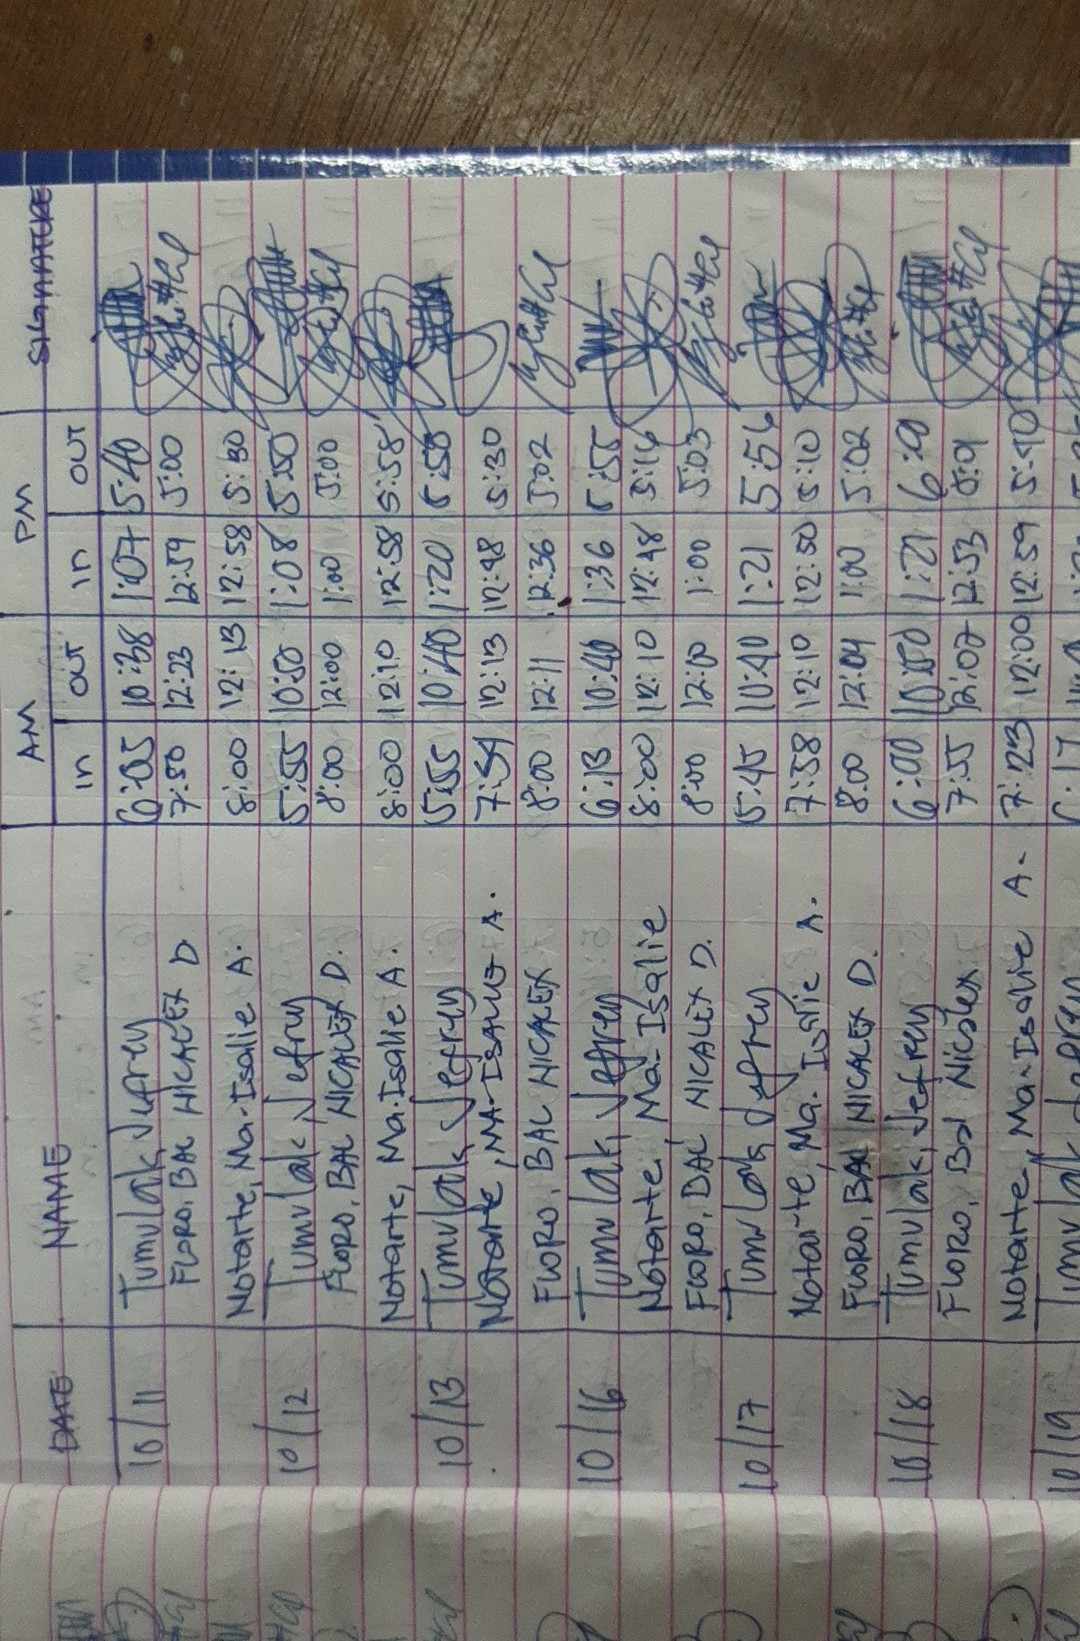 DATE NAME AM PM SIGNATURE
in OUT in OUT
10/11 Tumulak, Jefrey 6:05 10:38 1:07 5:40
FLORO, BAL NICALEX D 7:50 12:23 12:59 5:00
Notarte, Ma. Isalie A. 8:00 12:13 12:58 5:30
10/12 Tumulak, Jefrey 5:55 10:50 1:08 5:50
FLORO, BAL NICALEX D. 8:00 12:00 1:00 5:00
Notarte, Ma. Isalie A. 8:00 12:10 12:58 5:58
10/13 Tumulak, Jefrey 5:55 10:40 1:20 5:50
Notarte, MA-ISALIE A. 7:54 12:13 12:48 5:30
FLORO, BAL NICALEX 8:00 12:11 12:36 5:02
10/16 Tumulak, Jefrey 6:13 10:40 1:36 5:55
Notarte Ma. Isalie 8:00 12:10 12:48 5:16
FLORO, BAL NICALEX D. 8:00 12:00 1:00 5:03
10/17 Tumulak, Jefrey 5:45 10:40 1:21 5:56
Notarte, Ma. Isalie A. 7:58 12:10 12:50 5:10
FLORO, BAL NICALEX D. 8:00 12:04 1:00 5:02
10/18 Tumulak, Jefrey 6:00 10:50 1:21 6:00
FLORO, Bal Nicolex 7:55 12:07 12:53 5:01
Notarte, Ma. Isalie A. 7:23 12:00 12:59 5:10
10/19 Tumulak Jefrey 6:17